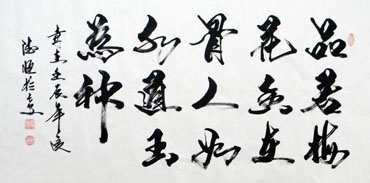 品若梅
花香在
骨人如
玉
為神
壬辰年夏